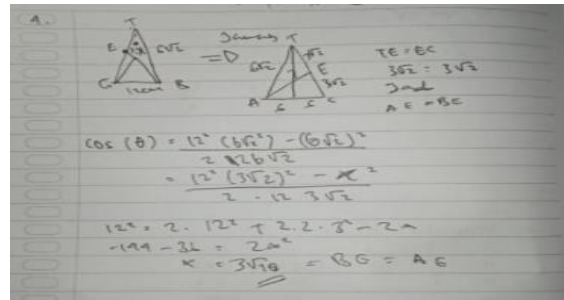 4.
T
E 6√2
G B
12cm
=D
Jawaș T
6√2 √2
E
3√2
A 6 6 C
TE = EC
3√2 = 3√2
Jad
AE = BE
cos (θ) = 12² (6√2²) - (6√2)²
2 126√2
= 12² (3√2)² - x²
2 - 12 3√2
12² = 2 · 12² + 2.2 · 3² - 2x
-144 - 36 = 2x²
x = 3√10 = BG = AG